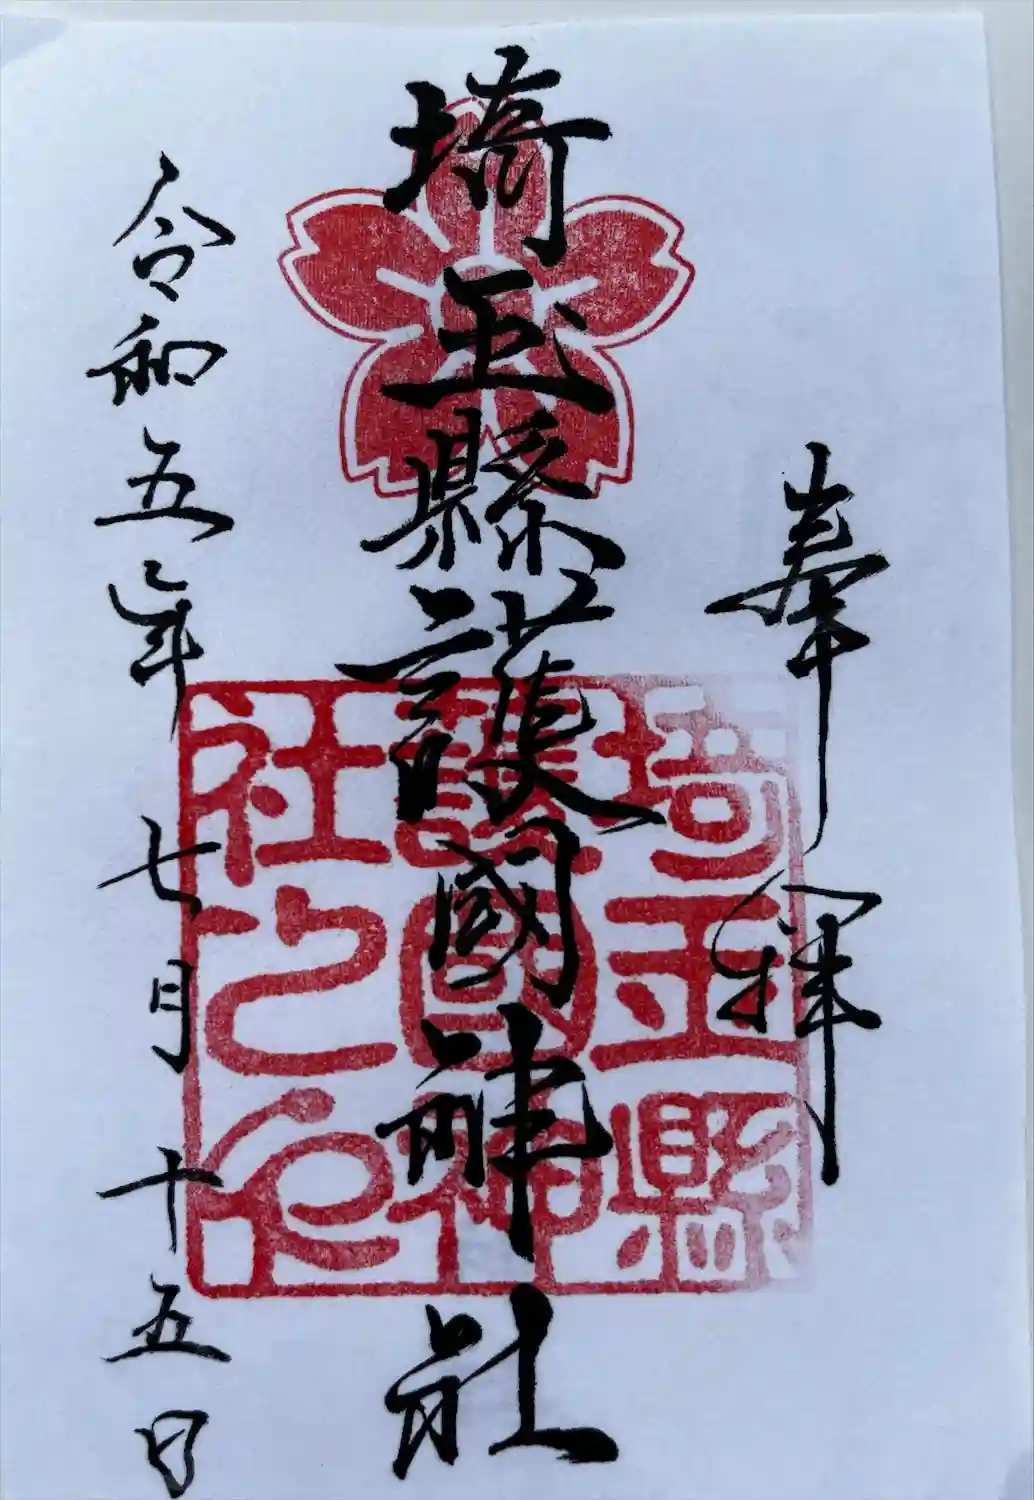 奉拜
埼玉縣護國神社
令和五年七月十五日
埼玉縣
護國神
社之印